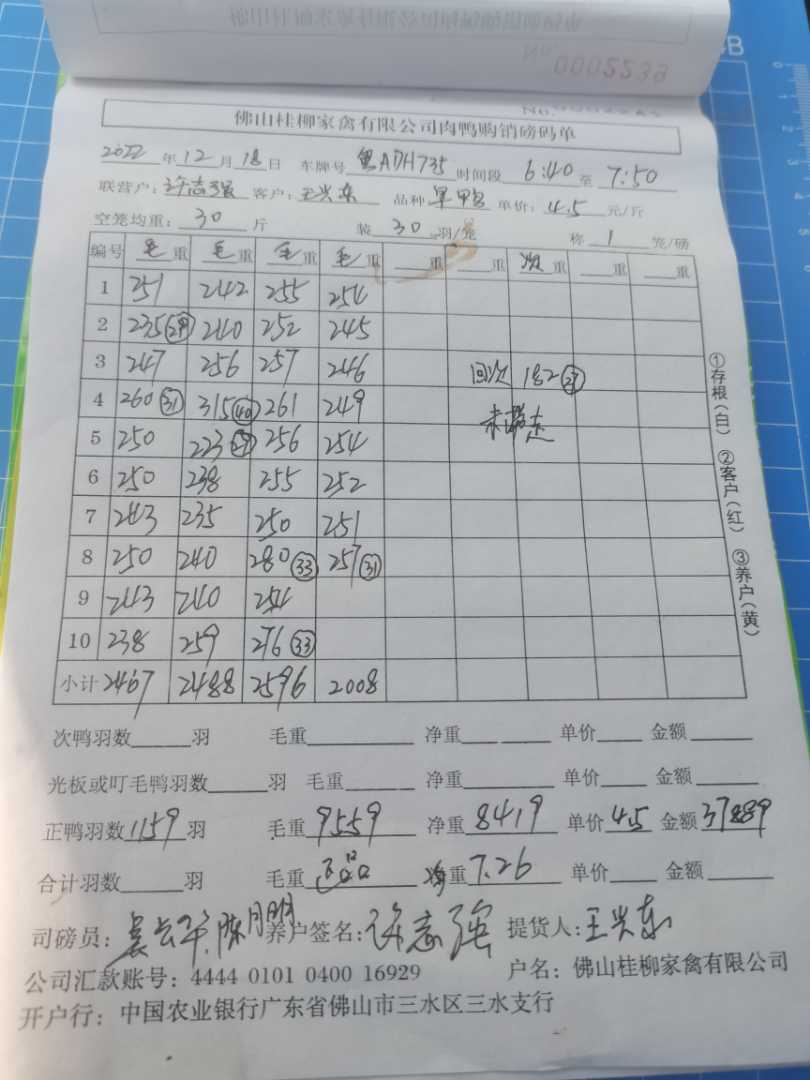 No 0002239
佛山桂柳家禽有限公司肉鸭购销磅码单
2022 年 12 月 18 日 车牌号 粤ADH735 时间段 6:40 至 7:50
联营户: 许志强 客户: 王兴东 品种 单价: 4.5 元/斤
空笼均重: 30 斤 装 30 羽/笼 称 1 笼/磅
编号 毛重 毛重 毛重 毛重 重 重 次重 重 重
1 251 242 255 254
2 235(29) 240 252 245
3 247 256 257 246 回次 182(27)
4 260(31) 315(40) 261 249
5 250 223 256 254 未带走
6 250 238 255 252
7 243 235 250 251
8 250 240 280(33) 257(31)
9 243 240 254
10 238 259 276(33)
小计 2467 2488 2596 2008
①存根(白) ②客户(红) ③养户(黄)
次鸭羽数 羽 毛重 净重 单价 金额
光板或叮毛鸭羽数 羽 毛重 净重 单价 金额
正鸭羽数 1159 羽 毛重 9559 净重 8419 单价 4.5 金额 37889
合计羽数 羽 毛重 正品 均重 7.26 单价 金额
司磅员: 陈月明 养户签名: 许志强 提货人: 王兴东
公司汇款账号: 4444 0101 0400 16929 户名: 佛山桂柳家禽有限公司
开户行: 中国农业银行广东省佛山市三水区三水支行